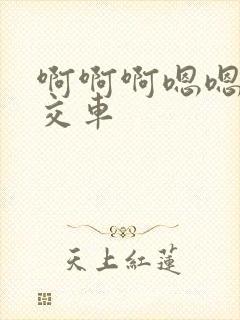 啊啊啊嗯嗯
交车
天上紅蓮